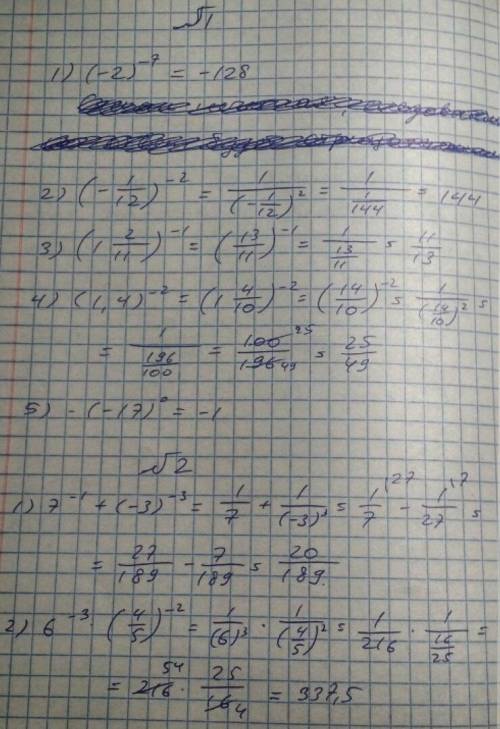 №1
1) (-2)^-7 = -128
2) (- 1/12)^-2 = 1/(- 1/12)^2 = 1/(1/144) = 144
3) (1 2/11)^-1 = (13/11)^-1 = 1/(13/11) = 11/13
4) (1,4)^-2 = (1 4/10)^-2 = (14/10)^-2 = 1/(14/10)^2 =
= 1/(196/100) = 100 25/196 49 = 25/49
5) -(-17)^0 = -1
№2
1) 7^-1 + (-3)^-3 = 1/7 + 1/(-3)^3 = 1/7 \27 - 1/27 \7 =
= 27/189 - 7/189 = 20/189
2) 6^-3 · (4/5)^-2 = 1/(6)^3 · 1/(4/5)^2 = 1/216 · 1/(16/25) =
= 216 54 · 25/16 4 = 337,5